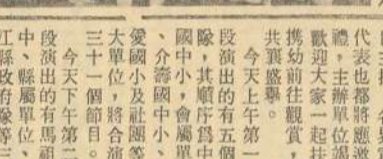 代表也都將應邀
禮，主辦單位竭
歡迎大家一起扶
携幼前往觀賞
共襄盛擧。
今天上午第一
段演出的有五個
隊，其順序爲中
國中小，會屬單
、介壽國中小、
愛國小及社團等
大單位，將合演
三十一個節目。
今天下午第二
段演出的有馬祖
中、縣屬單位、
江縣政府隊等三